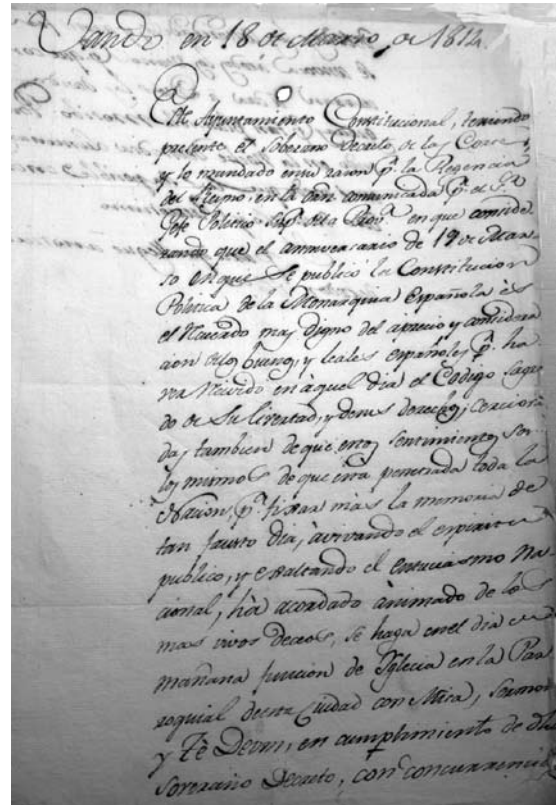 Vando en 18 de Marzo de 1814.
Este Ayuntamiento Constitucional, teniendo
precente el Soberano Decreto de las Cortes,
y lo mandado en su razon p.r la Regencia
del Reyno, en la orn comunicada p.r el S.or
Gefe Politico Sup.r de la Prov.a en que conside
rando que el anivercario de 19 de Mar
so en que se publicó la Constitucion
Politica de la Monarquia Española és
el mas digno del aprecio y considera
cion de los buenos, y leales españoles p.r ha
ver en àquel dia el Codigo Sagra
do de su livertad, y demas derechos; corciora
da, tambien de que estos sentimientos son
los mismos de que está penetrada toda la
Nacion, p.a fixar mas la memoria de
tan fausto dia, àvivando el espiritu
publico, y exaltando el entuciasmo Na
cional, hà acordado ànimado de los
mas vivos deceos, se haga en el dia de
mañana funcion de Yglecia en la Par
roquial de esta Ciudad con Mica, Sermon
y Te Deum, en cumplimiento de dho
Soverano Decreto, con concurrencia